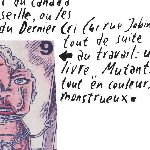 au Canada
seille, ou les
du Dernier Cri (ai rue Jobin
tout de suite
au travail: u
livre "Mutant
tout en couleur,
monstrueux.
9